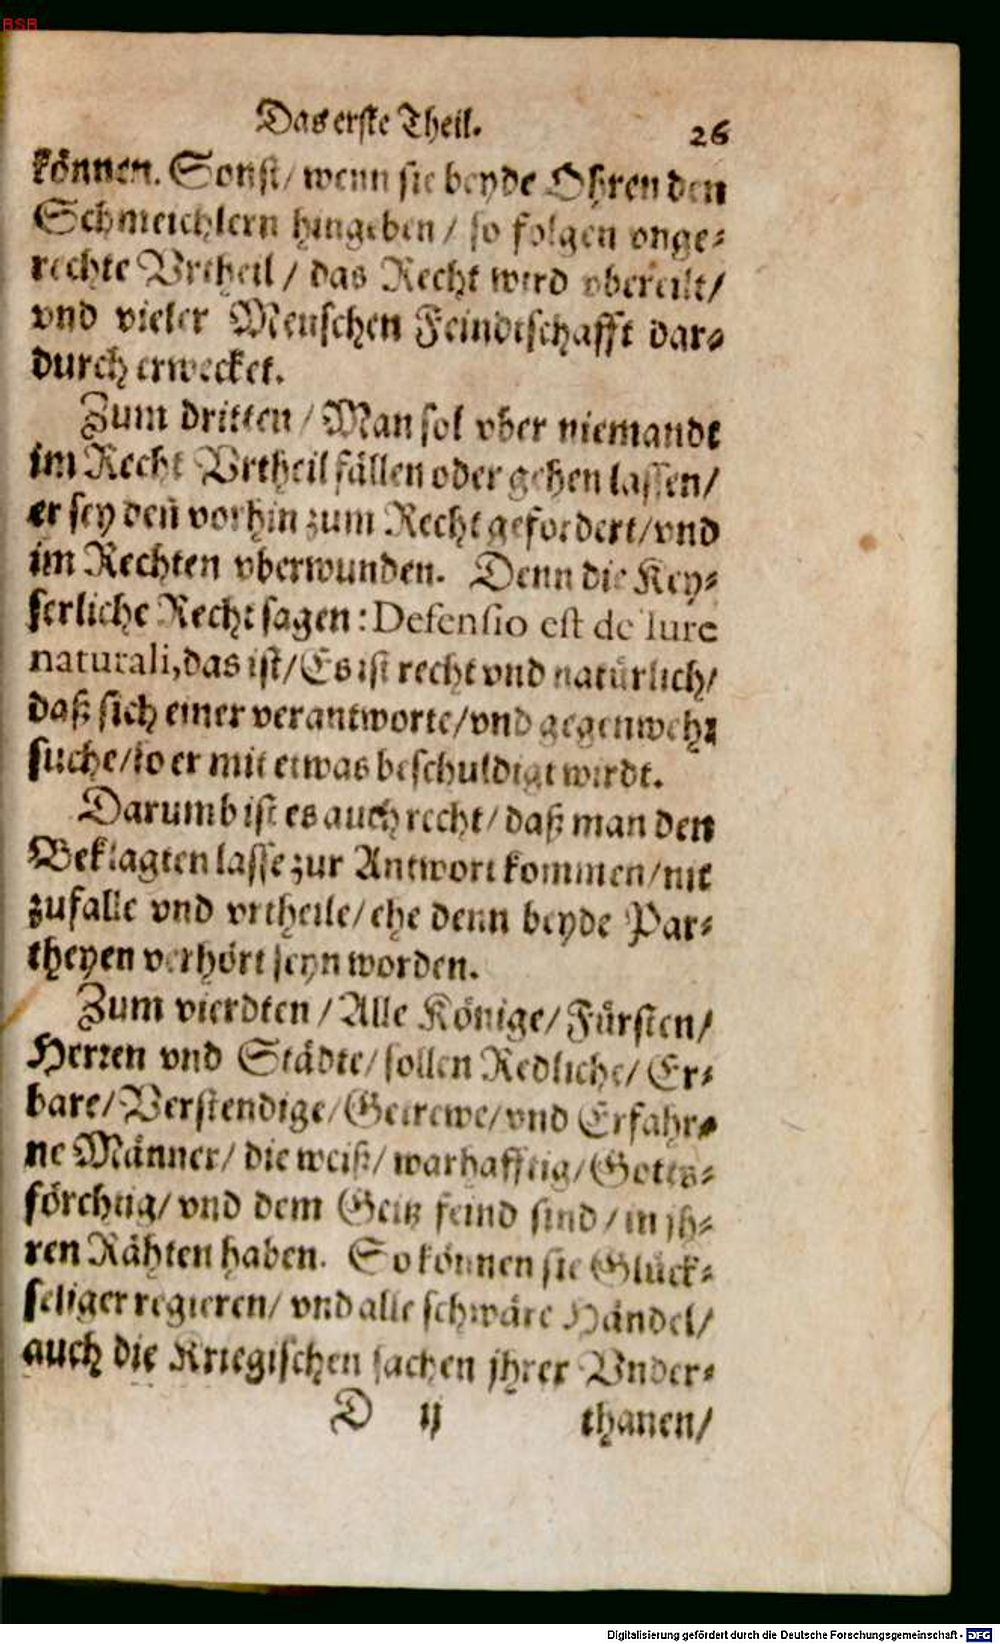 BSB
Das erste Theil. 26
können. Sonst/ wenn sie beyde Ohren den
Schmeichlern hingeben/ so folgen vnge-
rechte Vrtheil/ das Recht wird vbereilt/
vnd vieler Menschen Feindtschafft dar-
durch erwecket.
Zum dritten/ Man sol vber niemandt
im Recht Vrtheil fällen oder gehen lassen/
er sey deñ vorhin zum Recht gefordert/ vnd
im Rechten vberwunden. Denn die Key-
serliche Recht sagen: Defensio est de Iure
naturali, das ist/ Es ist recht vnd natürlich/
daß sich einer verantworte/ vnd gegenwehr
suche/ so er mit etwas beschuldigt wirdt.
Darumb ist es auch recht/ daß man den
Beklagten lasse zur Antwort kommen/ nit
zufalle vnd vrtheile/ ehe denn beyde Par-
theyen verhört seyn worden.
Zum vierdten/ Alle Könige/ Fürsten/
Herren vnd Städte/ sollen Redliche/ Er-
bare/ Verstendige/ Getrewe/ vnd Erfahr-
ne Männer/ die weiß/ warhafftig/ Gotts-
förchtig/ vnd dem Geitz feind sind/ in jh-
ren Rähten haben. So können sie Glück-
seliger regieren/ vnd alle schwäre Händel/
auch die Kriegischen sachen jhrer Vnder-
D ij thanen/
Digitalisierung gefördert durch die Deutsche Forschungsgemeinschaft - DFG